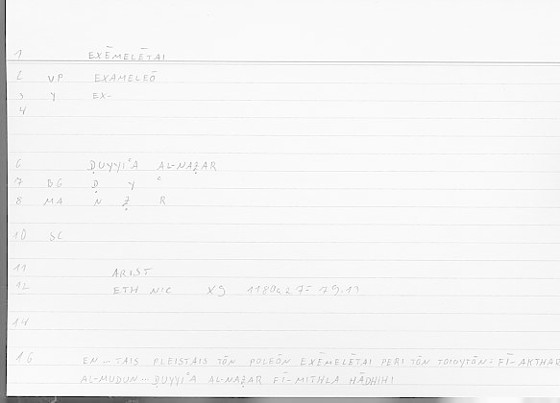 1 EXĒMELĒTAI
2 VP EXAMELEŌ
3 Y EX-
4
6 ḌUYYIʿA AL-NAẒAR
7 BG Ḍ Y ʿ
8 MA N Ẓ R
10 SC
11 ARIST
12 ETH NIC X9 1180a27- 79.11
14
16 EN – TAIS PLEISTAIS TŌN POLEŌN EXĒMELĒTAI PERI TŌN TOIOYTŌN = FĪ-AKTHAR
AL-MUDUN – ḌUYYIʿA AL-NAẒAR FĪ-MITHLA HĀDHIHI